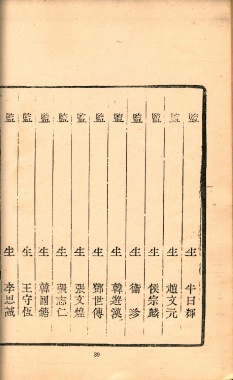 監生 牛日輝
監生 趙文元
監生 侯宗麟
監生 衞珍
監生 韓遊漢
監生 鄧世傳
監生 張文煌
監生 張志仁
監生 韓國
監生 王守恆
監生 李思誠
39